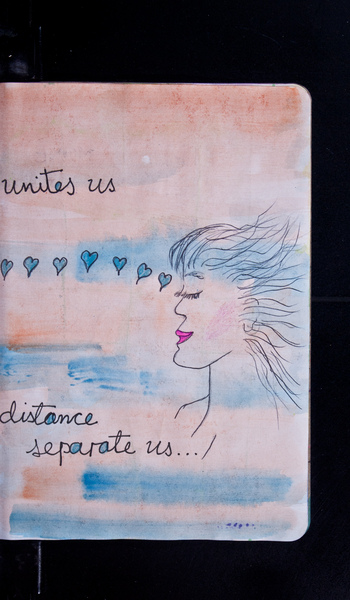 unites us
distance
separate us.../